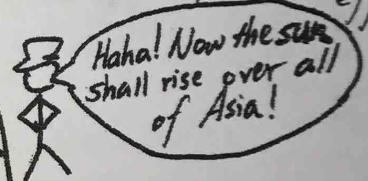 Haha! Now the sun
shall rise over all
of Asia!